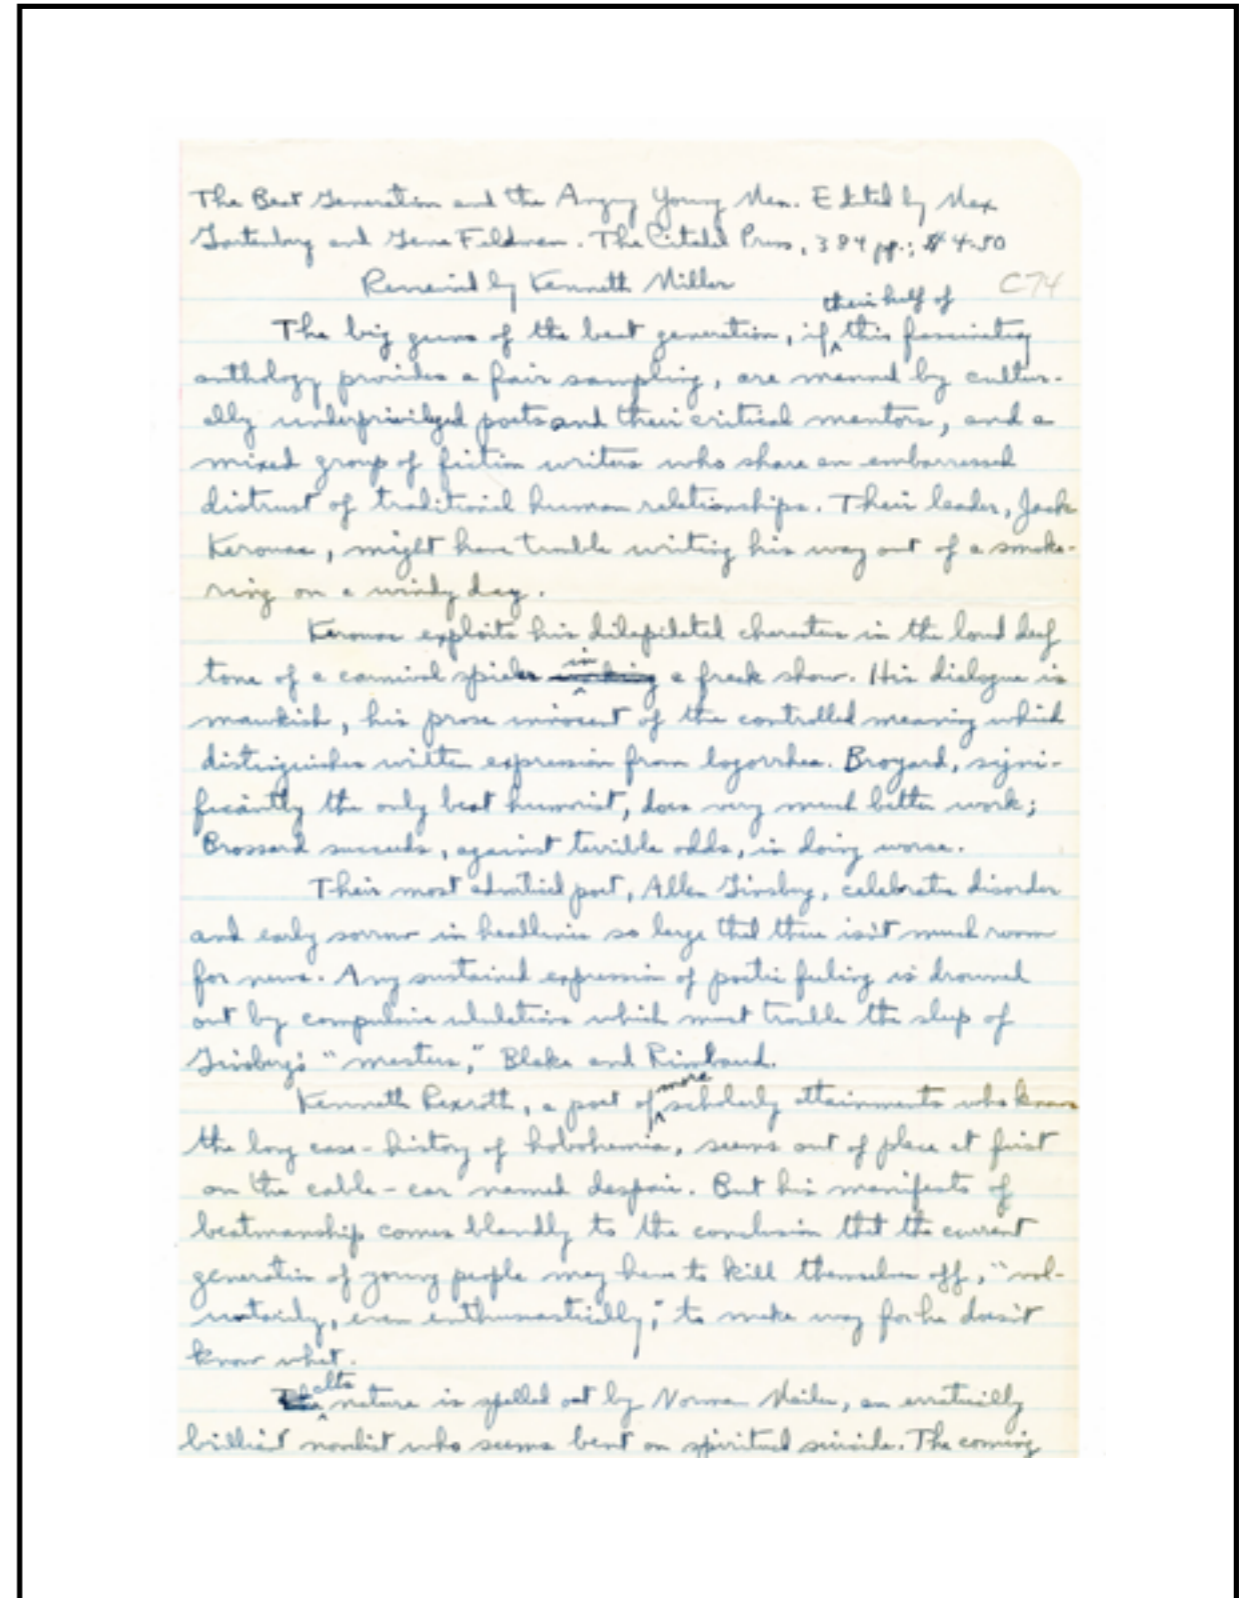 The Beat Generation and the Angry Young Men. Edited by Max
Gartenberg and Gene Feldman. The Citadel Press, 384 pp.; $4.50
Reviewed by Kenneth Millar
C74
their half of
The big guns of the beat generation, if ^ this fascinating
anthology provides a fair sampling, are manned by cultur-
ally underprivileged poets and their critical mentors, and a
mixed group of fiction writers who share an embarrassed
distrust of traditional human relationships. Their leader, Jack
Kerouac, might have trouble writing his way out of a smoke-
ring on a windy day.
Kerouac exploits his dilapidated characters in the loud deaf
tone of a carnival spieler in a freak show. His dialogue is
mawkish, his prose innocent of the controlled meaning which
distinguishes written expression from logorrhea. Broyard, signi-
ficantly the only beat humorist, does very much better work;
Brossard succeeds, against terrible odds, in doing worse.
Their most admired poet, Allen Ginsberg, celebrates disorder
and early sorrow in headlines so large that there isn't much room
for news. Any sustained expression of poetic feeling is drowned
out by compulsive ululations which must trouble the sleep of
Ginsberg's "masters," Blake and Rimbaud.
more
Kenneth Rexroth, a poet of ^ scholarly attainments who knows
the long case-history of hobohemia, seems out of place at first
on the cable-car named despair. But his manifesto of
beatmanship comes blandly to the conclusion that the current
generation of young people may have to kill themselves off, "vol-
untarily, even enthusiastically," to make way for he doesn't
know what.
nature is spelled out by Norman Mailer, an erratically
brilliant novelist who seems bent on spiritual suicide. The coming